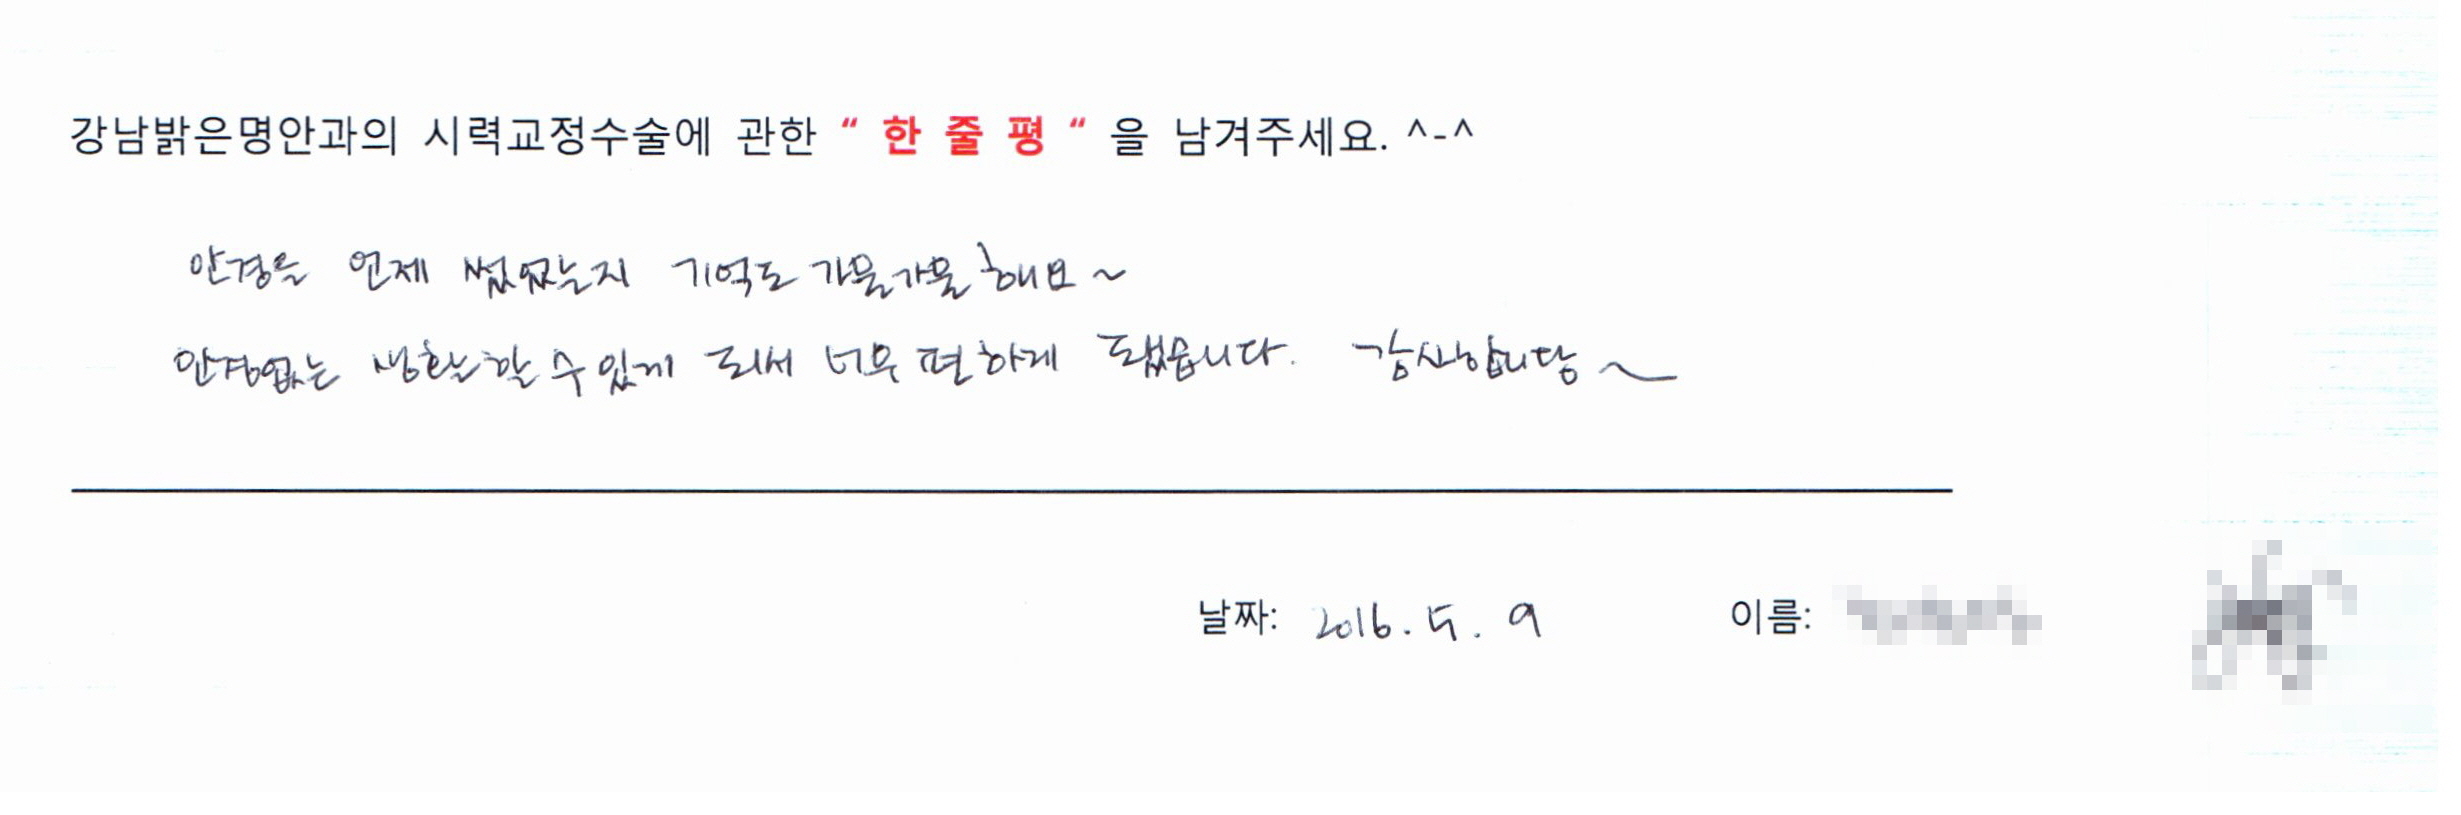 강남밝은명안과의 시력교정수술에 관한 “ 한 줄 평 “ 을 남겨주세요. ^-^
안경을 언제 썼었는지 기억도 가물가물 해요~
안경없는 생활 할 수 있게 되서 너무 편하게 됐습니다. 감사합니당~
날짜: 2016. 5. 9 이름: